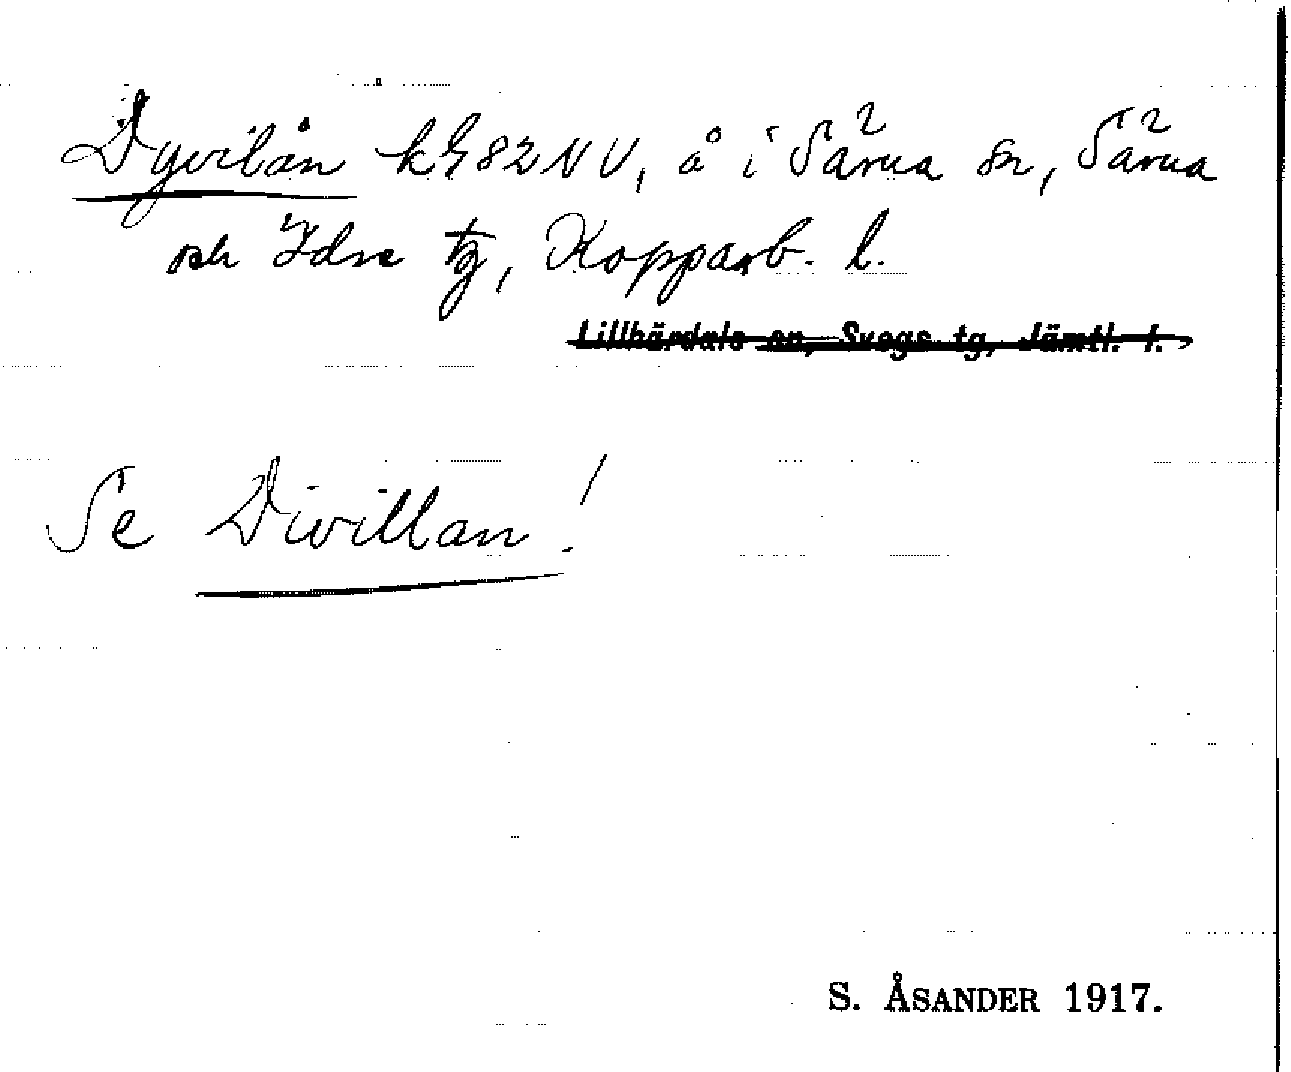 Dyvilån kG82NV, å i Särna sn, Särna
och Idre tg, Kopparb. l.
Lillhärdals sn, Svegs tg, Jämtl. l.
Se Divillan!
S. ÅSANDER 1917.